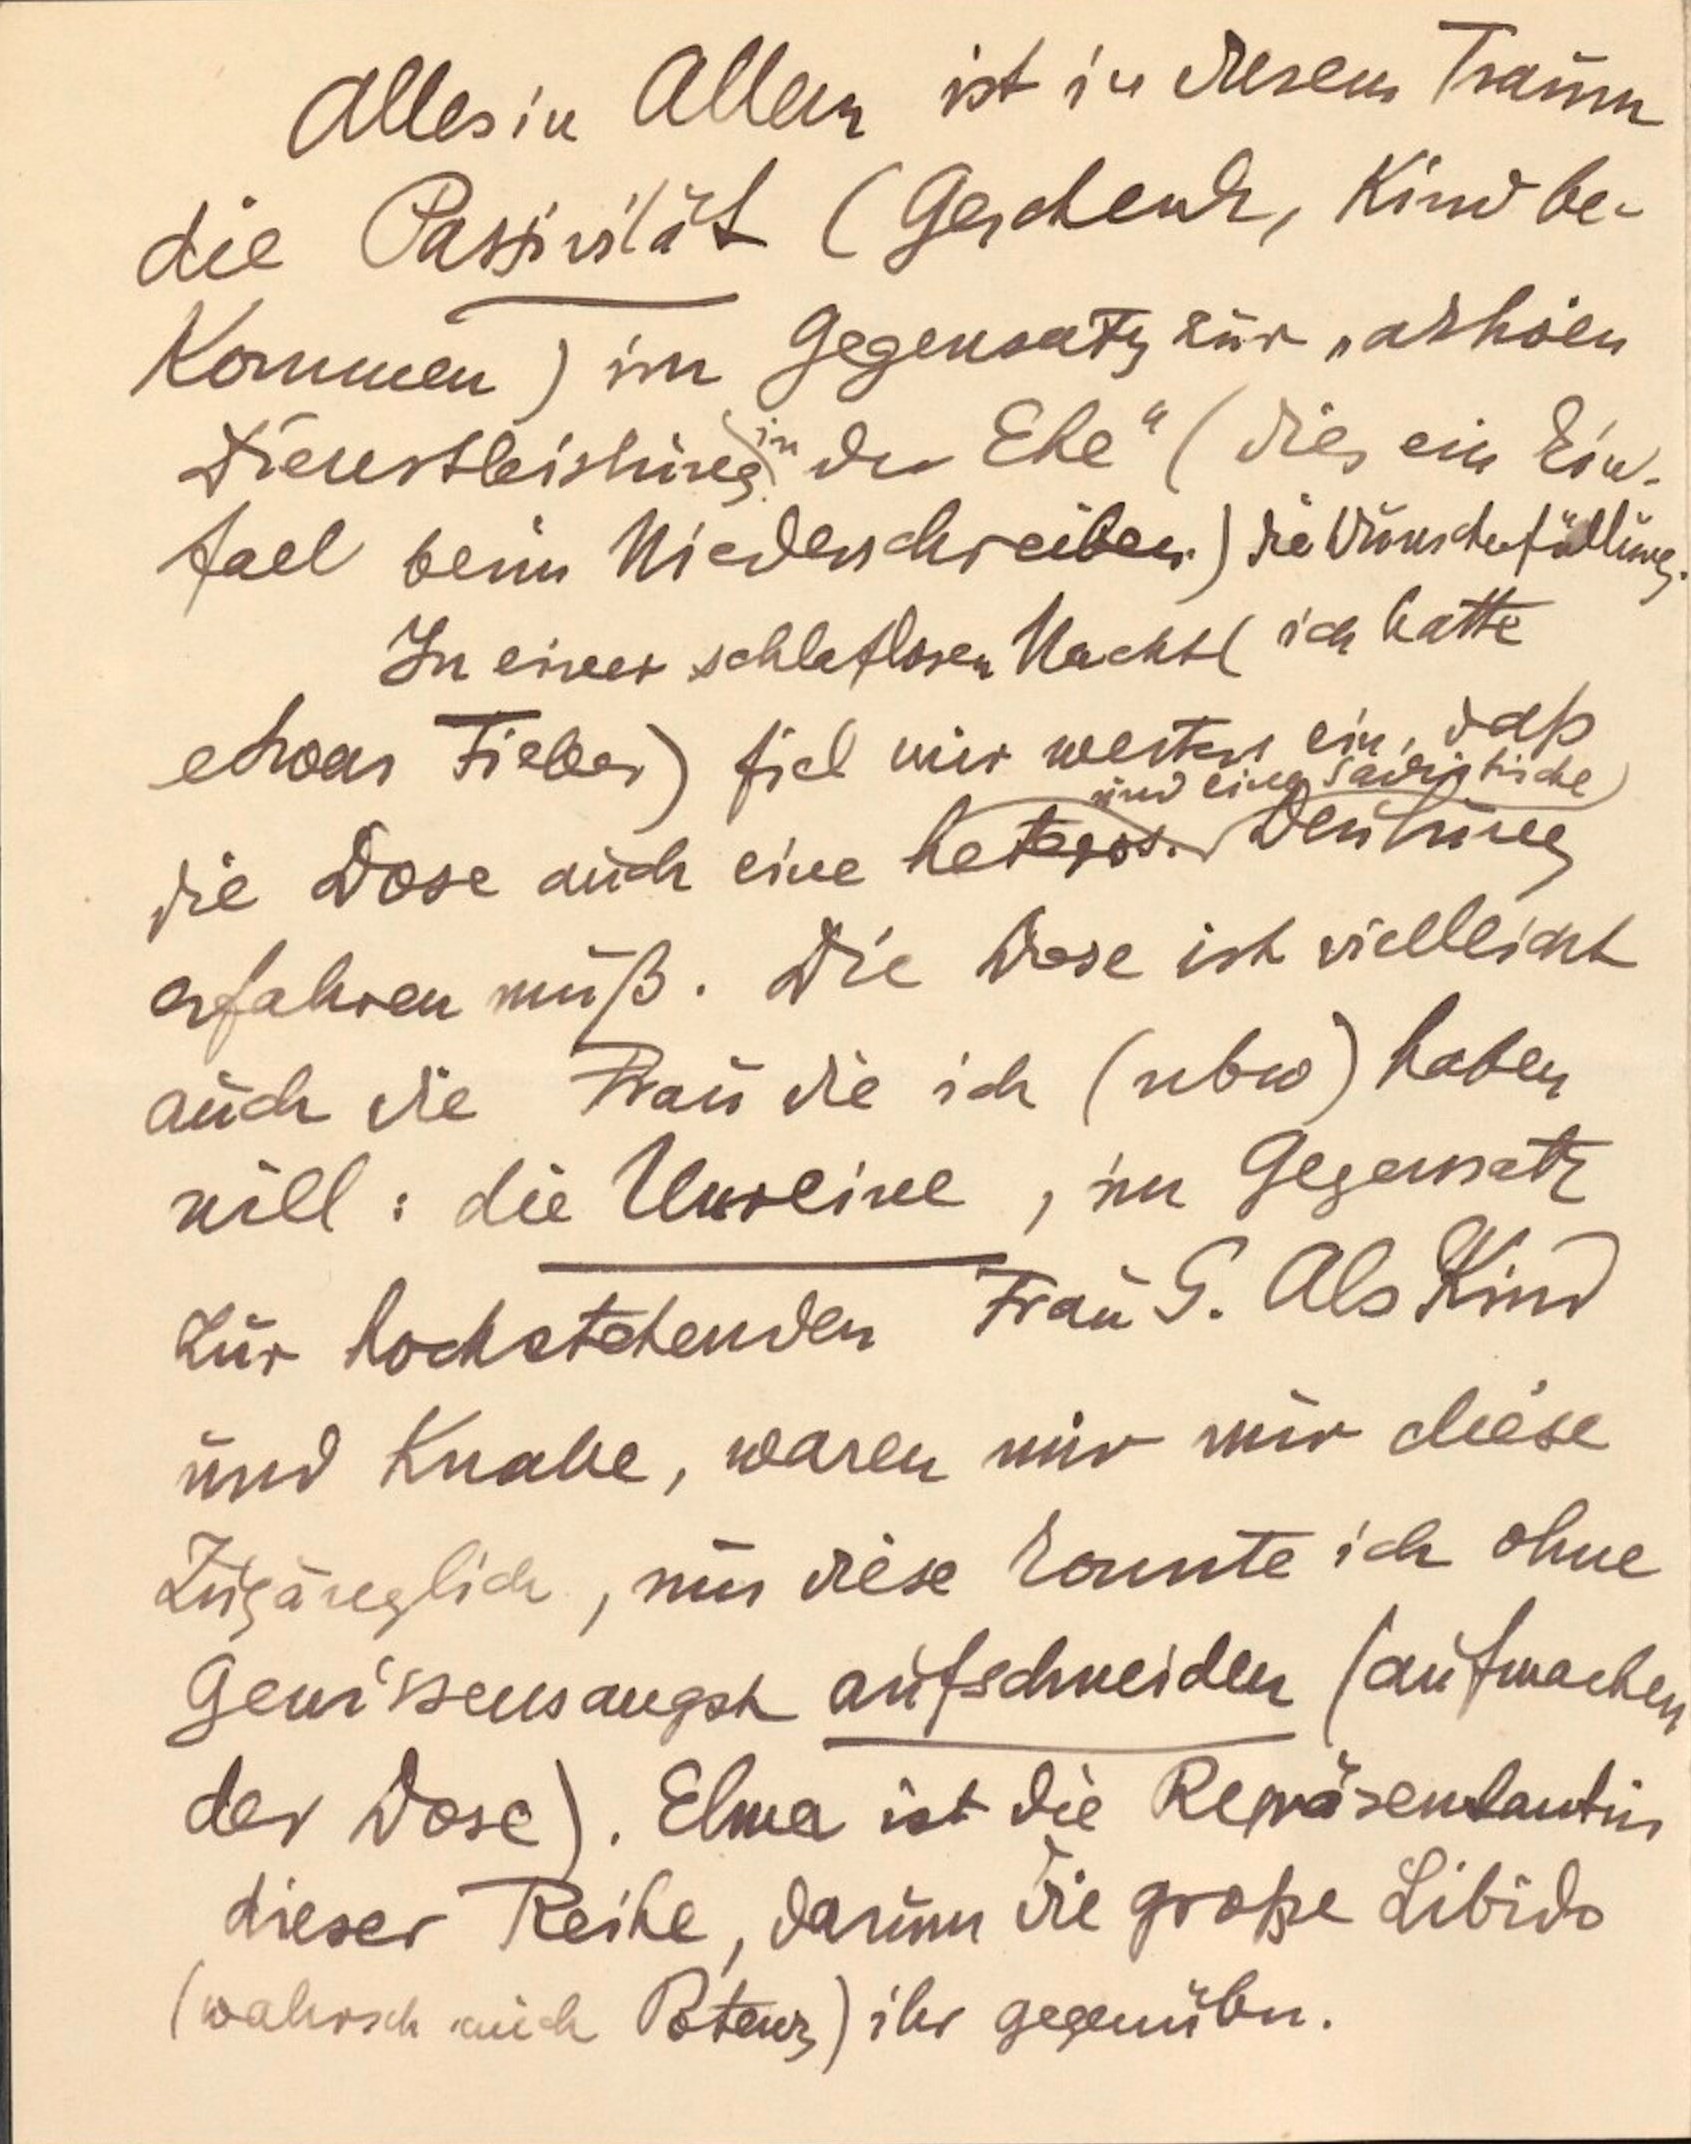 Alles in Allem ist in diesem Traum
die Passivität (Geschenk, Kind be-
kommen) im Gegensatz zur „aktiven
Dienstleistung in der Ehe" (dies ein Ein-
fall beim Niederschreiben.) die Wunscherfüllung.
In einer schlaflosen Nacht (ich hatte
etwas Fieber) fiel mir weiters ein, daß
und eine sadistische
die Dose auch eine heteros. Deutung
erfahren muß. Die Dose ist vielleicht
auch die Frau die ich (ubw) haben
will : die Unreine, im Gegensatz
zur hochstehenden Frau G. Als Kind
und Knabe, waren mir nur diese
Zugänglich, nur diese konnte ich ohne
Gewissensangst aufschneiden (aufmachen
der Dose). Elma ist die Repräsentantin
dieser Reihe, darum die große Libido
(wahrsch auch Potenz) ihr gegenüber.